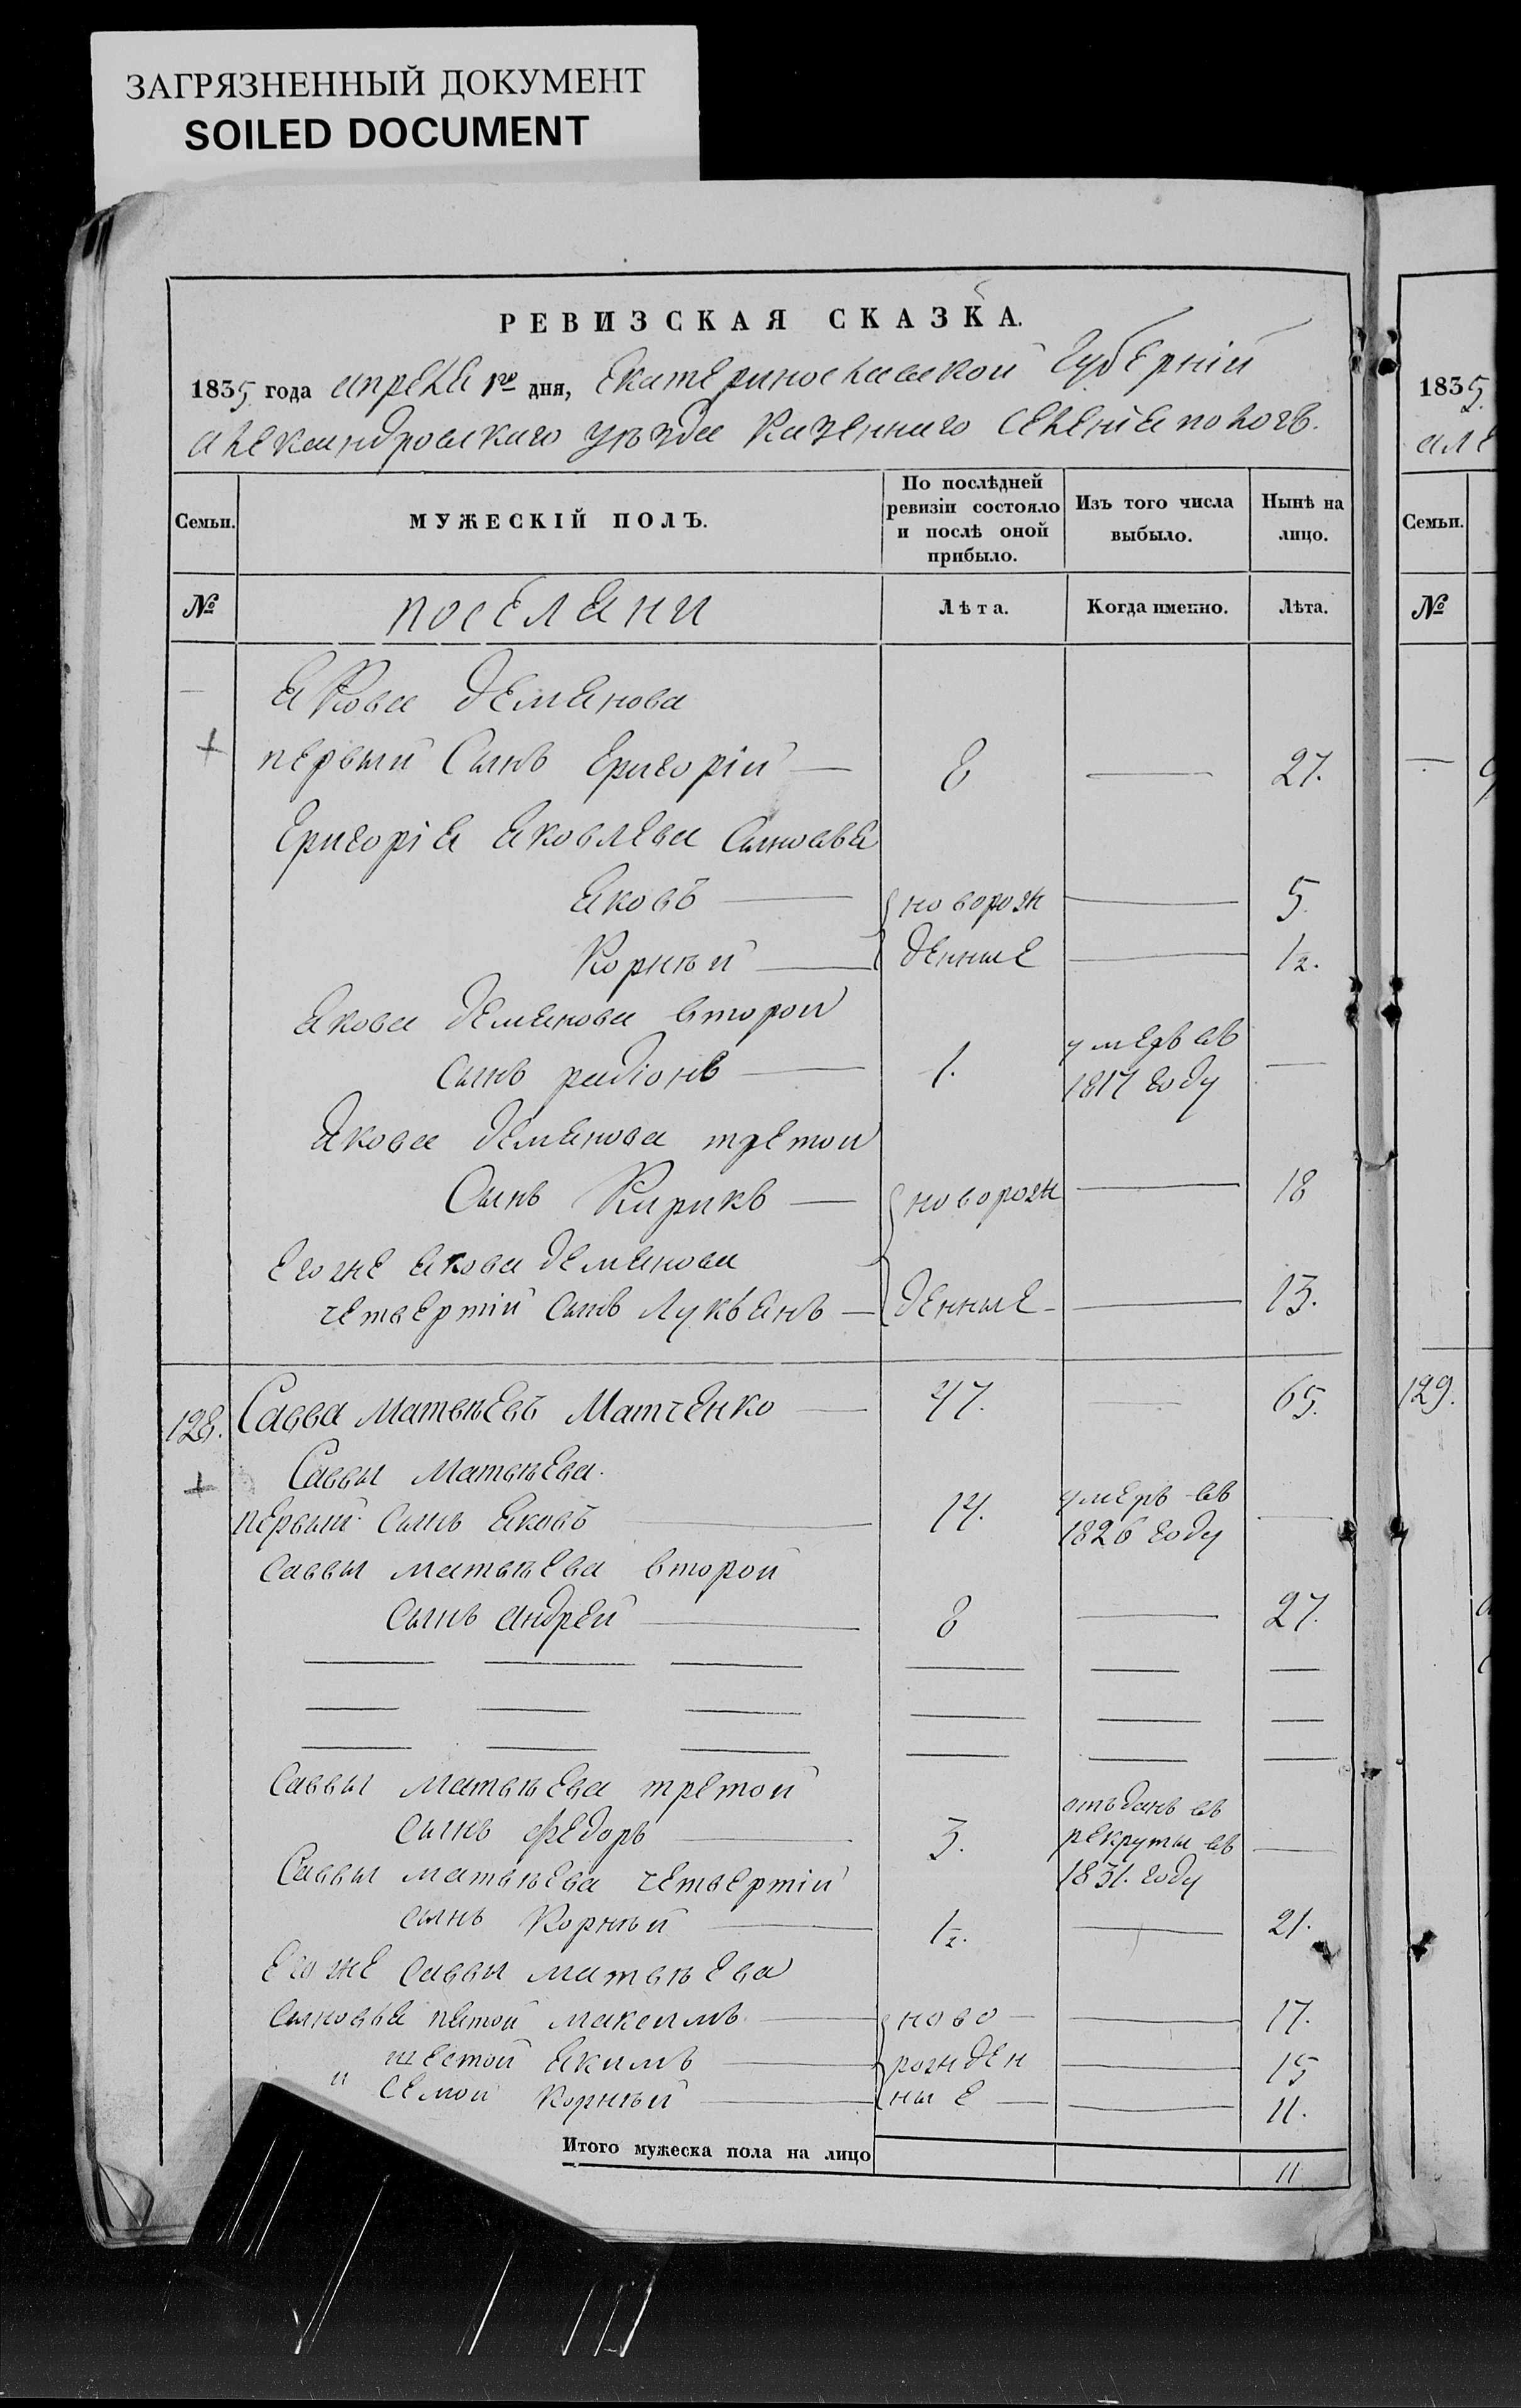 ЗАГРЯЗНЕННЫЙ ДОКУМЕНТ
SOILED DOCUMENT
РЕВИЗСКАЯ СКАЗКА.
1835 года апреля 1го дня, Екатеринославской Губерніи
александровскаго уѣзда казеннаго селенія пологъ.
Семьи.
МУЖЕСКІЙ ПОЛЪ.
По послѣдней ревизіи состояло и послѣ оной прибыло.
Изъ того числа выбыло.
Нынѣ на лицо.
№
поселяни
Лѣта.
Когда именно.
Лѣта.
—
Якова демянова
+ первый Сынъ Григорій — 8 — 27.
Григорія Яковлева Сыновья
Яковъ — новорож — 5.
Корнѣй — денные — 1/2.
Якова демянова второй
умеръ въ
сынъ радіонъ — 1. 1817 году —
Якова демянова третой
Сынъ Кирикъ — новорож — 18
Его же Якова демянова
четвертій сынъ Лукьянъ — денные — 13.
128. Савва Матвѣевъ Матченко — 47. — 65.
+ Саввы Матвѣева.
первый сынъ Яковъ — 14. умеръ въ 1826 году —
саввы матвѣева второй
сынъ андрей — 8 — 27.
— — — — — —
— — — — — —
— — — — — —
Саввы матвѣева третой
сынъ федоръ — 3. отъданъ въ рекруты въ 1831. году —
Саввы матвѣева четвертій
сынъ Корнѣй — 1/2. — 21.
Его же саввы матвѣева
сыновья пятой максимъ — ново — 17.
шестой Якимъ — рожден — 15
и семой Корнѣй — ные — 11.
Итого мужеска пола на лицо 11
1835.
але
Семьи.
№
—
129.